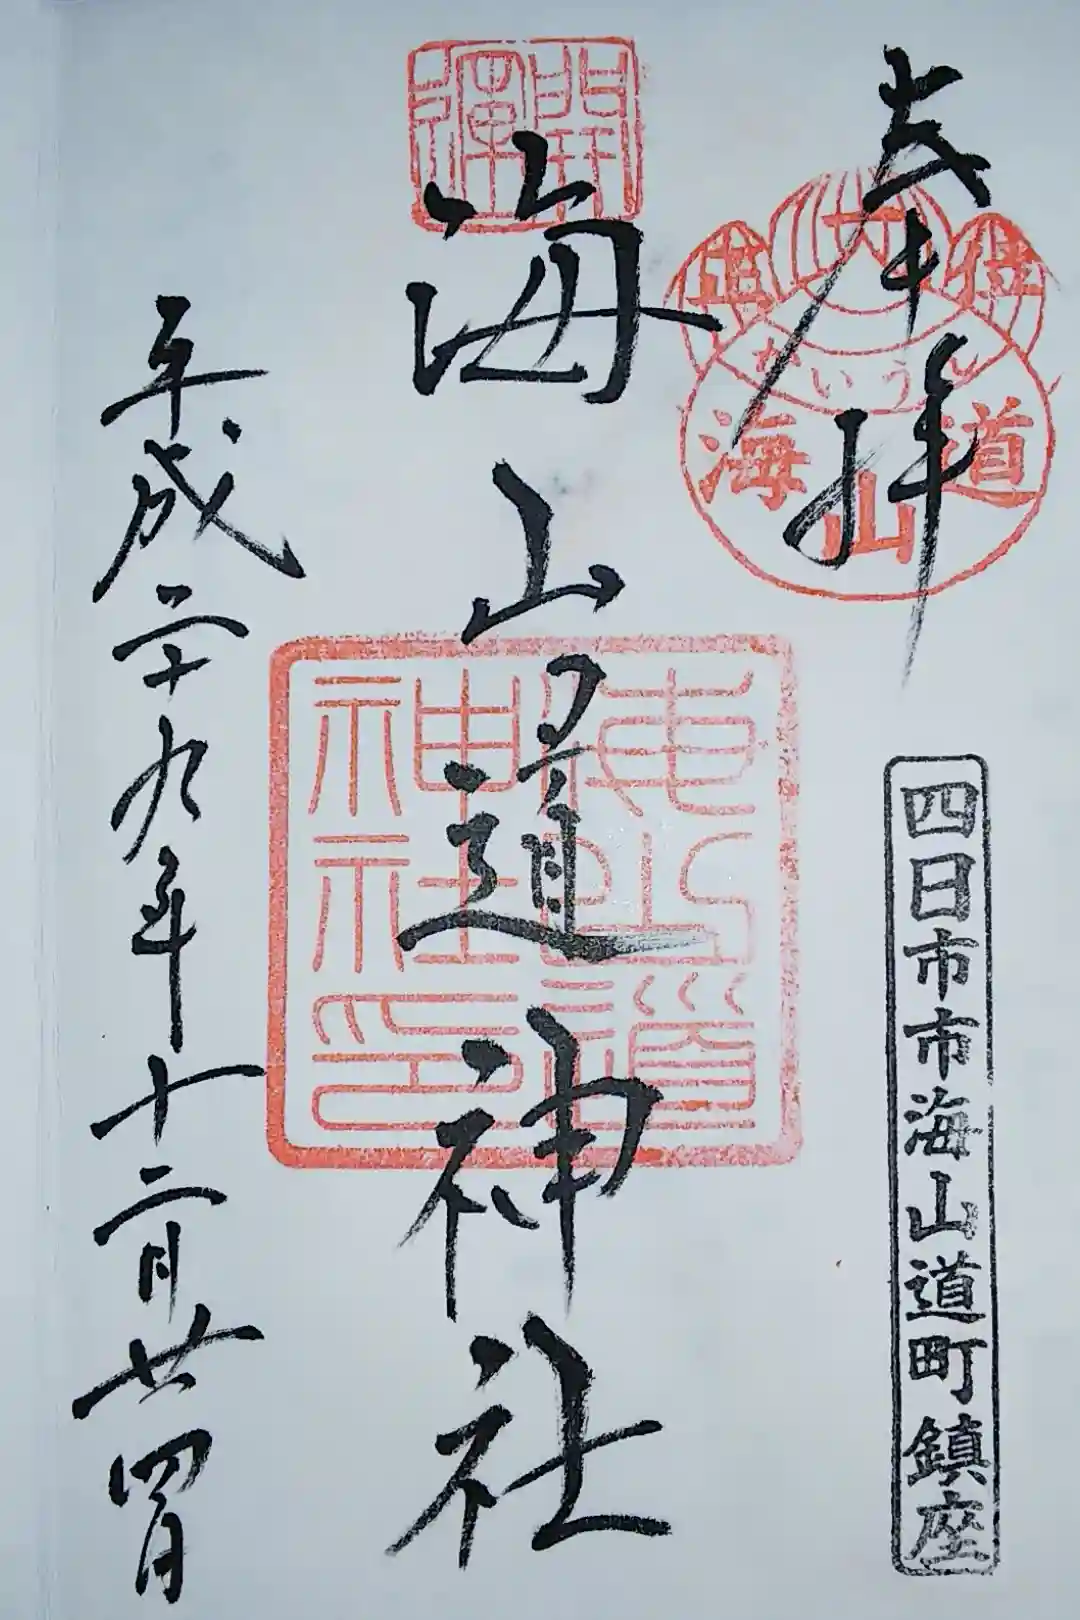 奉拝
正一位
かいうん
海山道
四日市市海山道町鎮座
開運
海山道神社
海山道神社印
平成二十九年十二月廿四日